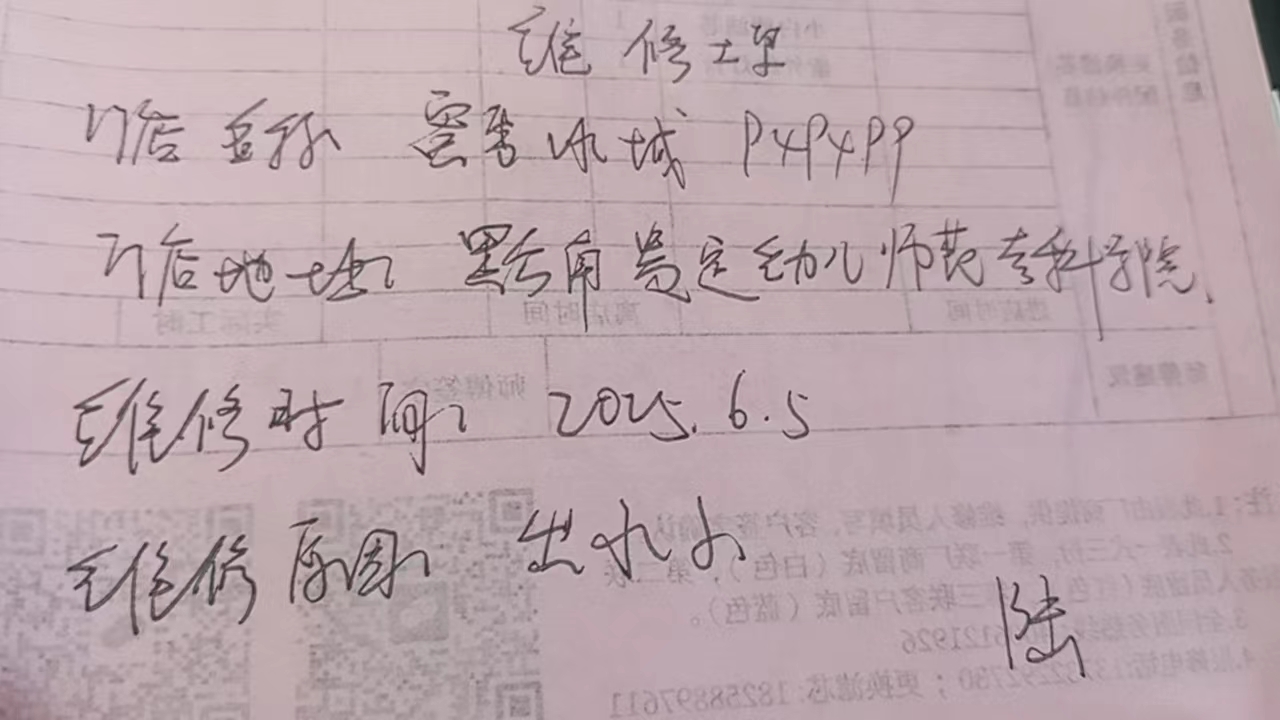 维修单
门店名称 蜜雪冰城 P4P4PP
门店地址: 黔南贵定幼儿师范专科学院.
维修时间: 2025.6.5
维修原因: 出水小
陆
注:1.此表由厂商提供, 维修人员填写, 客户签字确认
2.此表一式三份, 第一联厂商留底(白色), 第二联
服务人员留底(红色), 第三联客户留底(蓝色)。
3.全国服务热线
4.报修电话: ; 更换滤芯.18258897611
实际工时
离店时间
进店时间
师傅签字